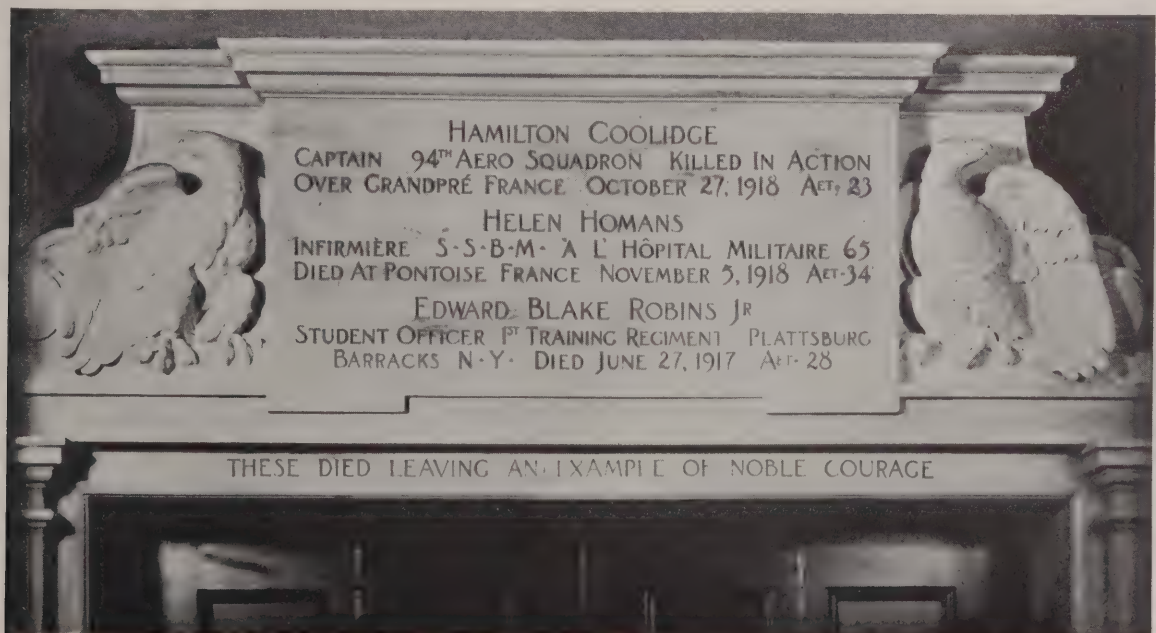 HAMILTON COOLIDGE
CAPTAIN 94TH AERO SQUADRON KILLED IN ACTION
OVER GRANDPRÉ FRANCE OCTOBER 27, 1918 AET, 23
HELEN HOMANS
INFIRMIÈRE S·S·B·M· À L' HÔPITAL MILITAIRE 65
DIED AT PONTOISE FRANCE NOVEMBER 5, 1918 AET·34
EDWARD BLAKE ROBINS JR
STUDENT OFFICER 1ST TRAINING REGIMENT PLATTSBURG
BARRACKS N·Y· DIED JUNE 27, 1917 AET· 28
THESE DIED LEAVING AN EXAMPLE OF NOBLE COURAGE